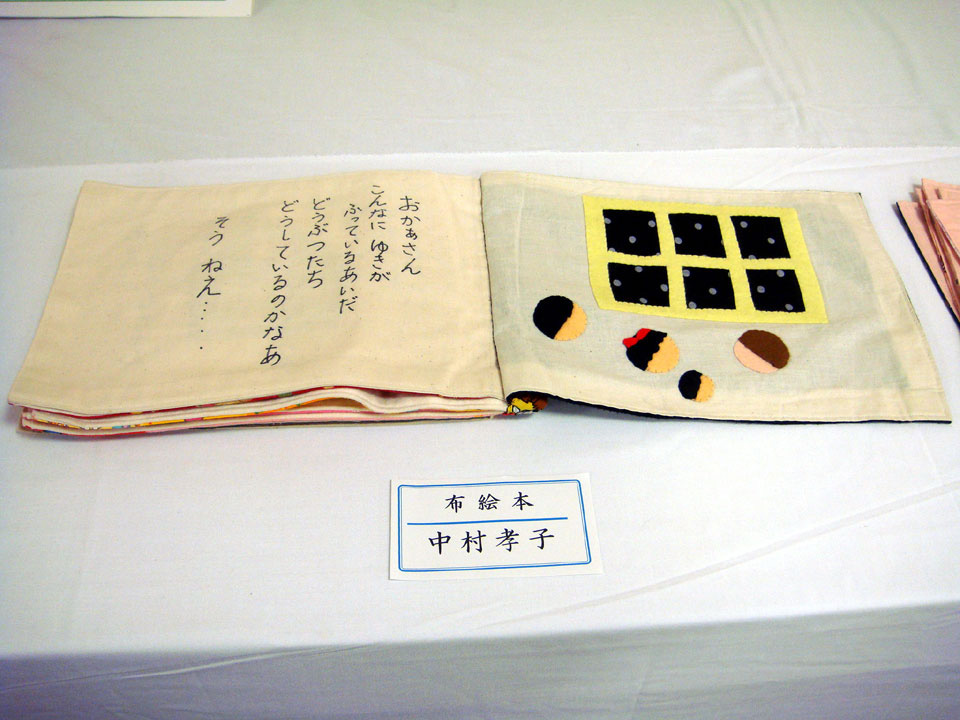 おかぁさん
こんなに ゆきが
ふっているあいだ
どうぶつたち
どうしているのかなあ
そう ねえ・・・・・
布絵本
中村孝子